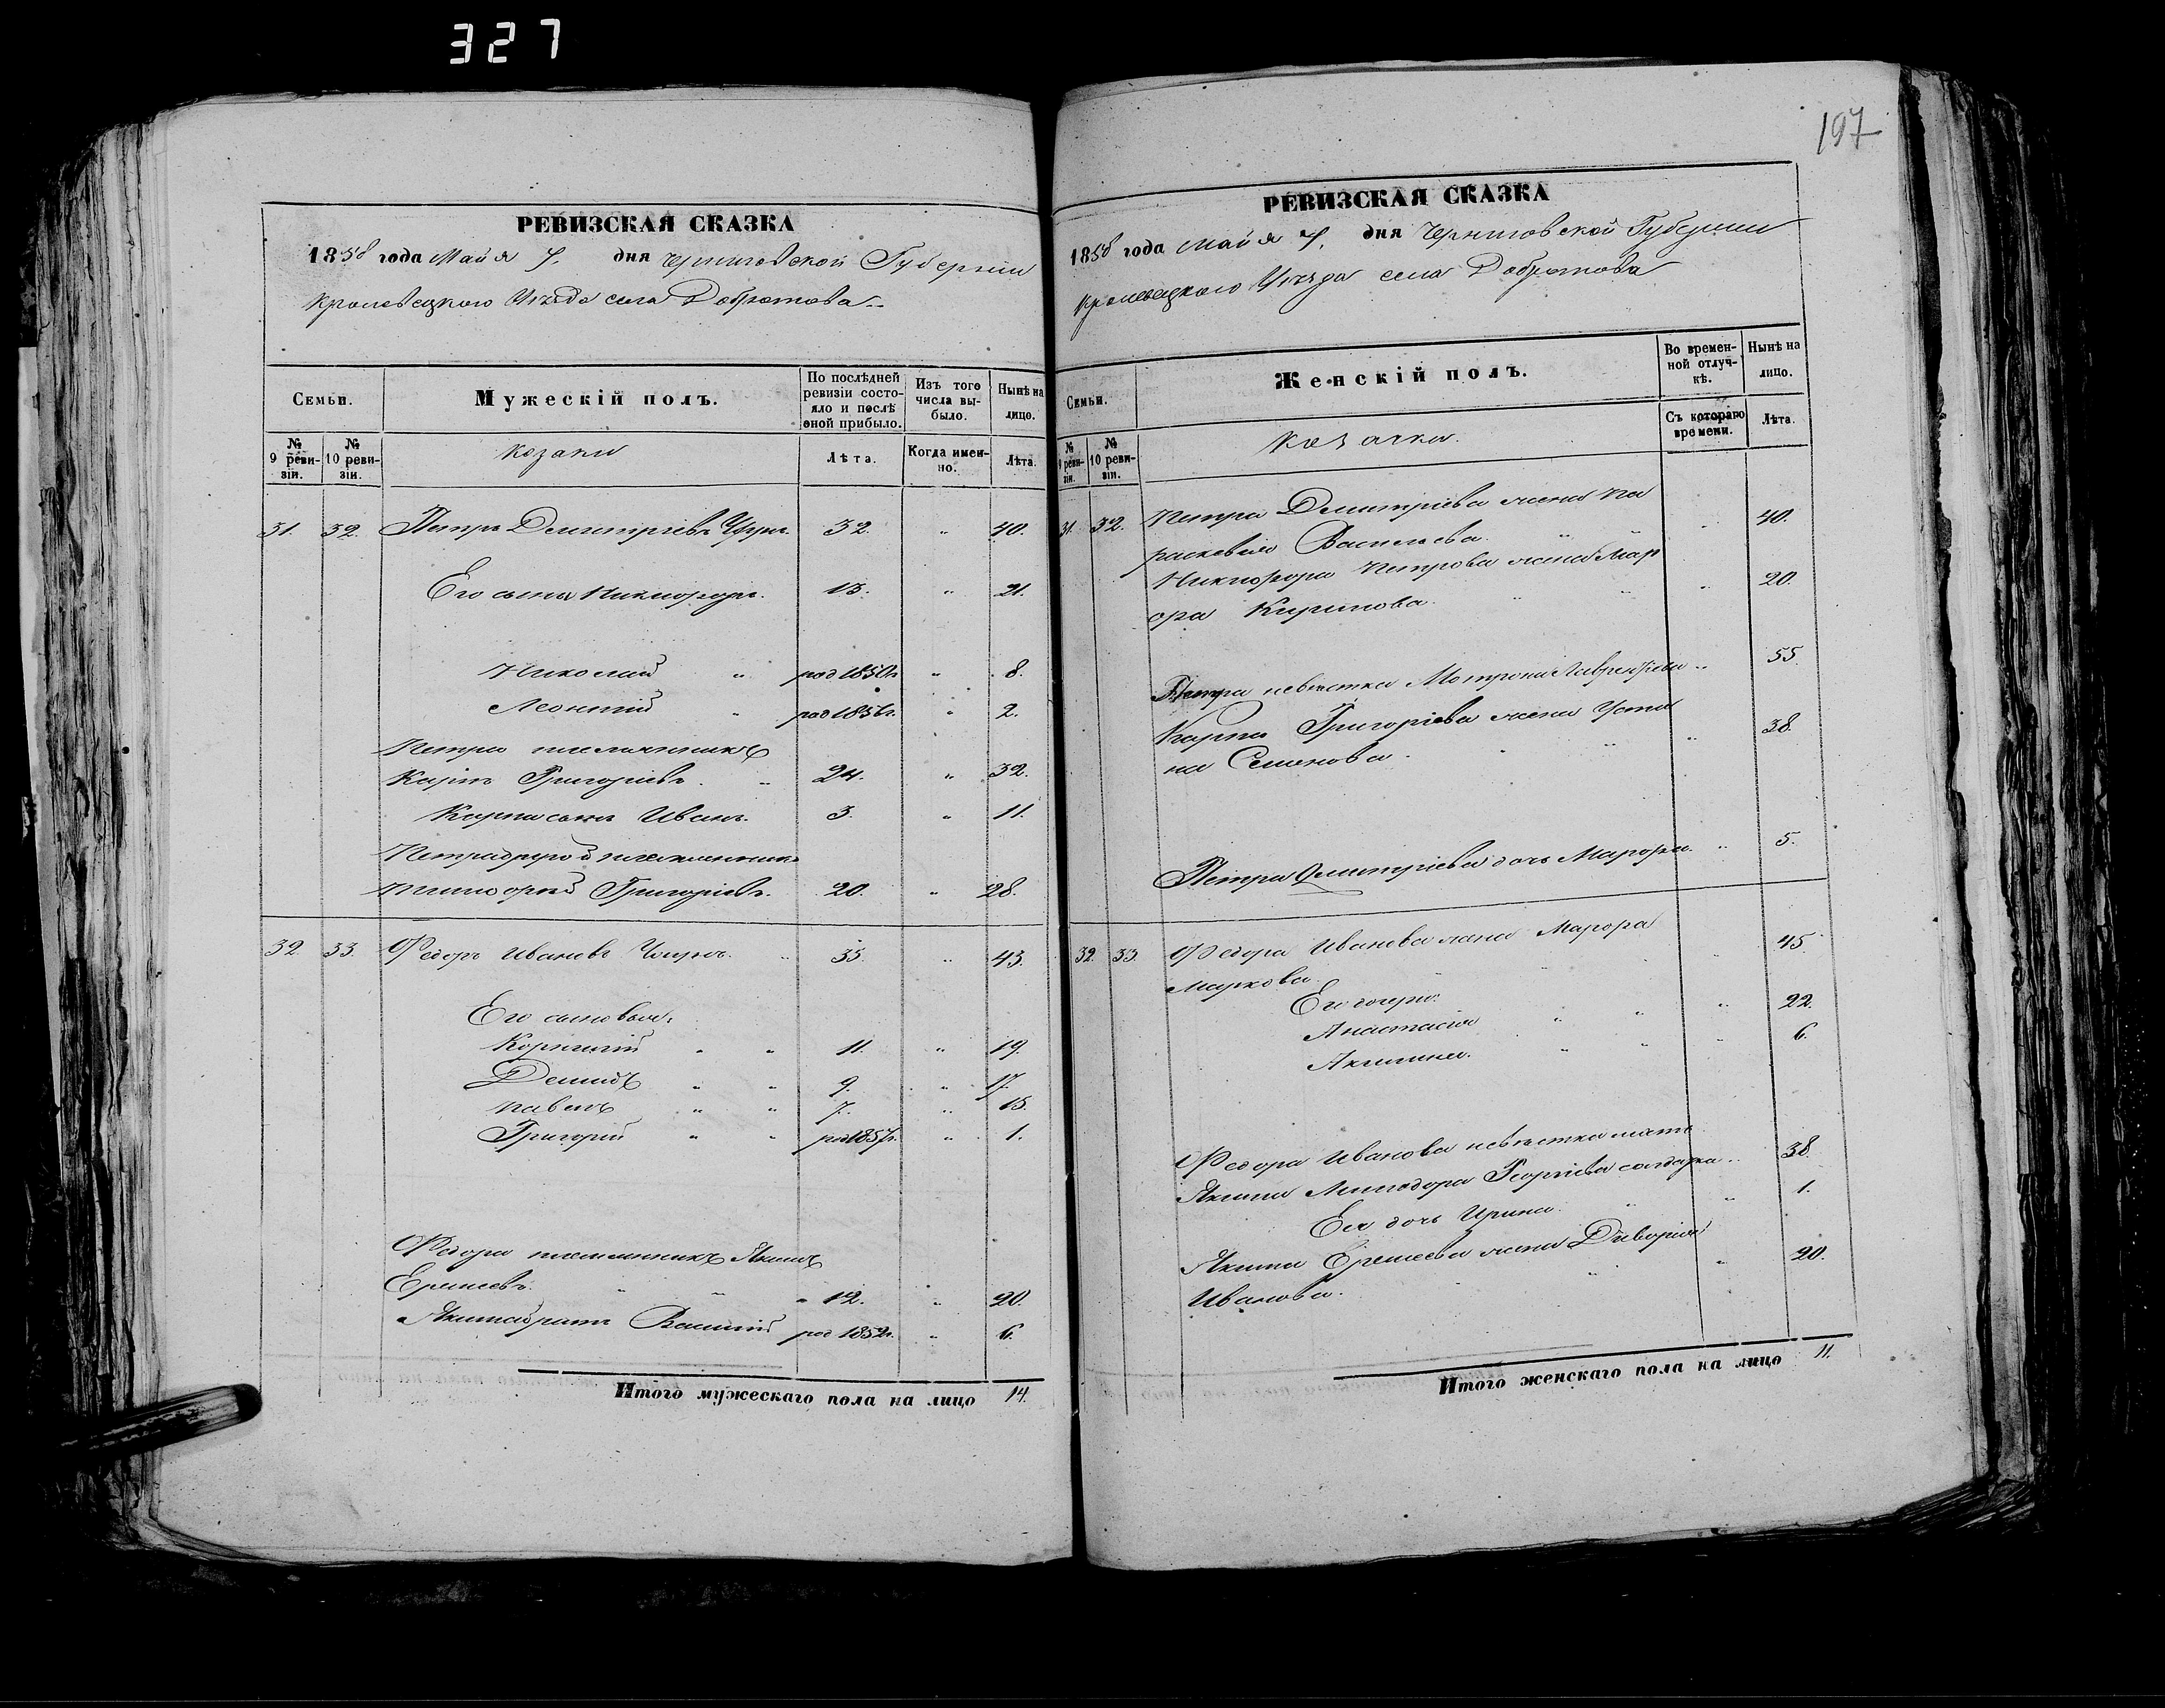 327
197
РЕВИЗСКАЯ СКАЗКА
1858 года Майя 7. дня Черниговской Губернии
Кролевецкого Уезда села Добротова
Семьи.
Мужескій полъ.
По послѣдней ревизіи состояло и послѣ оной прибыло.
Изъ того числа выбыло.
Нынѣ на лицо.
№ 9 ревизіи.
№ 10 ревизіи.
Козаки
Лѣта.
Когда именно.
Лѣта.
31. 32. Петръ Демитріевъ 32. " 40.
Его сынъ Никифоръ. 13. " 21.
Николай " род 1850г. " 8.
Леонтий " род 1856г. " 2.
Петра племянникъ
Карпъ Григоріевъ. " 24. " 32.
Карпа сынъ Иванъ. 3. " 11.
Петра другой племянникъ
Григоріевъ. 20. " 28.
32. 33. Федоръ Ивановъ " 35. " 43.
Его сыновья:
Корнилий " " 11. " 19.
Демидъ " " 9. " 17.
Павелъ " " 7. " 15.
Григорий " " род 1857г. " 1.
Федора племянникъ Якимъ
Еремеевъ. " " " 12. " 20.
Якима братъ Василий род 1852г. " 6.
Итого мужескаго пола на лицо 14.
РЕВИЗСКАЯ СКАЗКА
1858 года Майя 7. дня Черниговской Губернии
Кролевецкого Уезда села Добротова
Семьи.
Женскій полъ.
Во временной отлучкѣ.
Нынѣ на лицо.
№ 9 ревизіи.
№ 10 ревизіи.
Козачки.
Съ котораго времени.
Лѣта.
31. 32. Петра Демитріева жена Па
расковия Васильева. " " " 40.
Никифора Петрова жена Мар
фра Кирилова. " " " 20.
Петра невестка Мотрона Лаврентіева " 55.
Карпа Григоріева жена Усти
на Семенова. " " " 38.
Петра Демитріева дочь Марфра. " 5.
32. 33. Федора Иванова жена Марфра
Маркова. " " " 45.
Его дочери:
Анастасія " " " 22.
Акилина. " " " 6.
Федора Иванова невестка мать
Якима Георгіева солдатка " 38.
Ея дочь Ирина. " " 1.
Якима Еремеева жена
Иванова. " " " 20.
Итого женскаго пола на лицо 11.